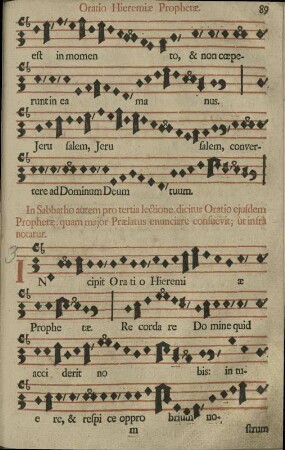 Oratio Hieremiæ Prophetæ. 89
est in momen to, & non cœpe-
runt in ea ma nus.
Jeru salem, Jeru salem, conver-
tere ad Dominum Deum tuum.
In Sabbatho autem pro tertia lectione, dicitur Oratio ejusdem
Prophetæ, quam major Prælatus enunciare consuevit; ut infrà
notatur.
3
IN cipit Ora ti o Hieremi æ
Prophe tæ. Re corda re Do mine quid
acci derit no bis: in tu-
e re, & respi ce oppro brium no-
m strum